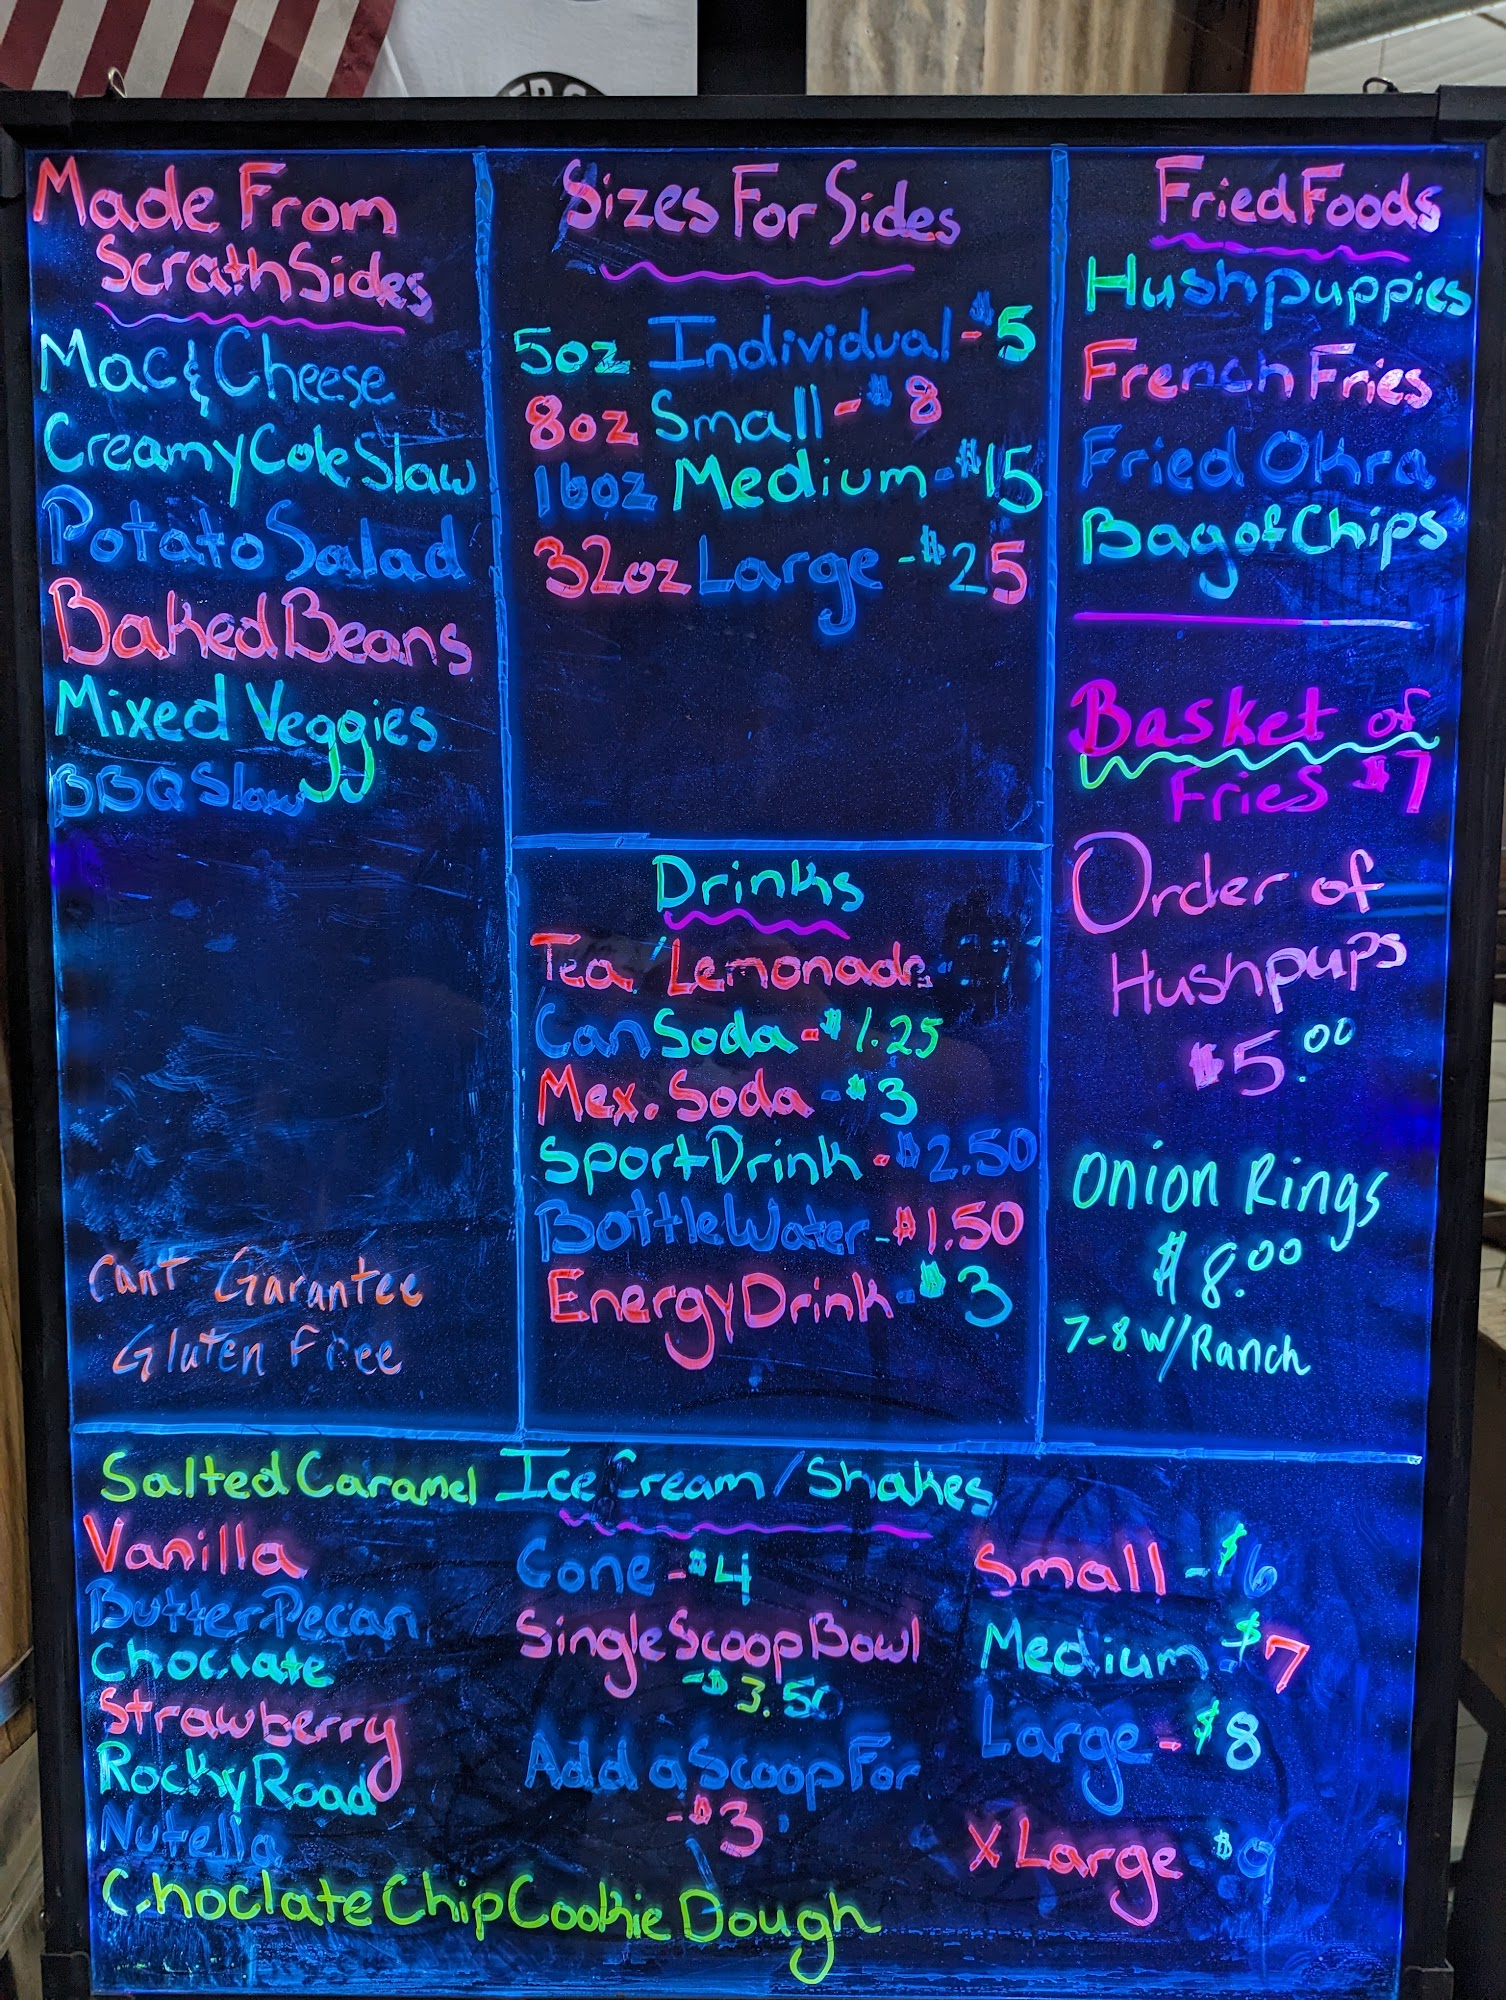 Made From
Scrath Sides
Mac & Cheese
Creamy Cole Slaw
Potato Salad
Baked Beans
Mixed Veggies
BBQ Slaw
Cant Garantee
Gluten Free
Sizes For Sides
5oz Individual - $5
8oz Small - $8
16oz Medium - $15
32oz Large - $25
Drinks
Tea / Lemonade
Can Soda - $1.25
Mex. Soda - $3
Sport Drink - $2.50
Bottle Water - $1.50
Energy Drink - $3
Fried Foods
Hushpuppies
French Fries
Fried Okra
Bag of Chips
Basket of
Fries $7
Order of
Hushpups
$5.00
Onion Rings
$8.00
7-8 w/Ranch
Salted Caramel Ice Cream / Shakes
Vanilla
Butter Pecan
Choclate
Strawberry
Rocky Road
Nutella
Choclate Chip Cookie Dough
Cone - $4
Single Scoop Bowl
- $3.50
Add a Scoop For
- $3
Small - $6
Medium - $7
Large - $8
X Large $9